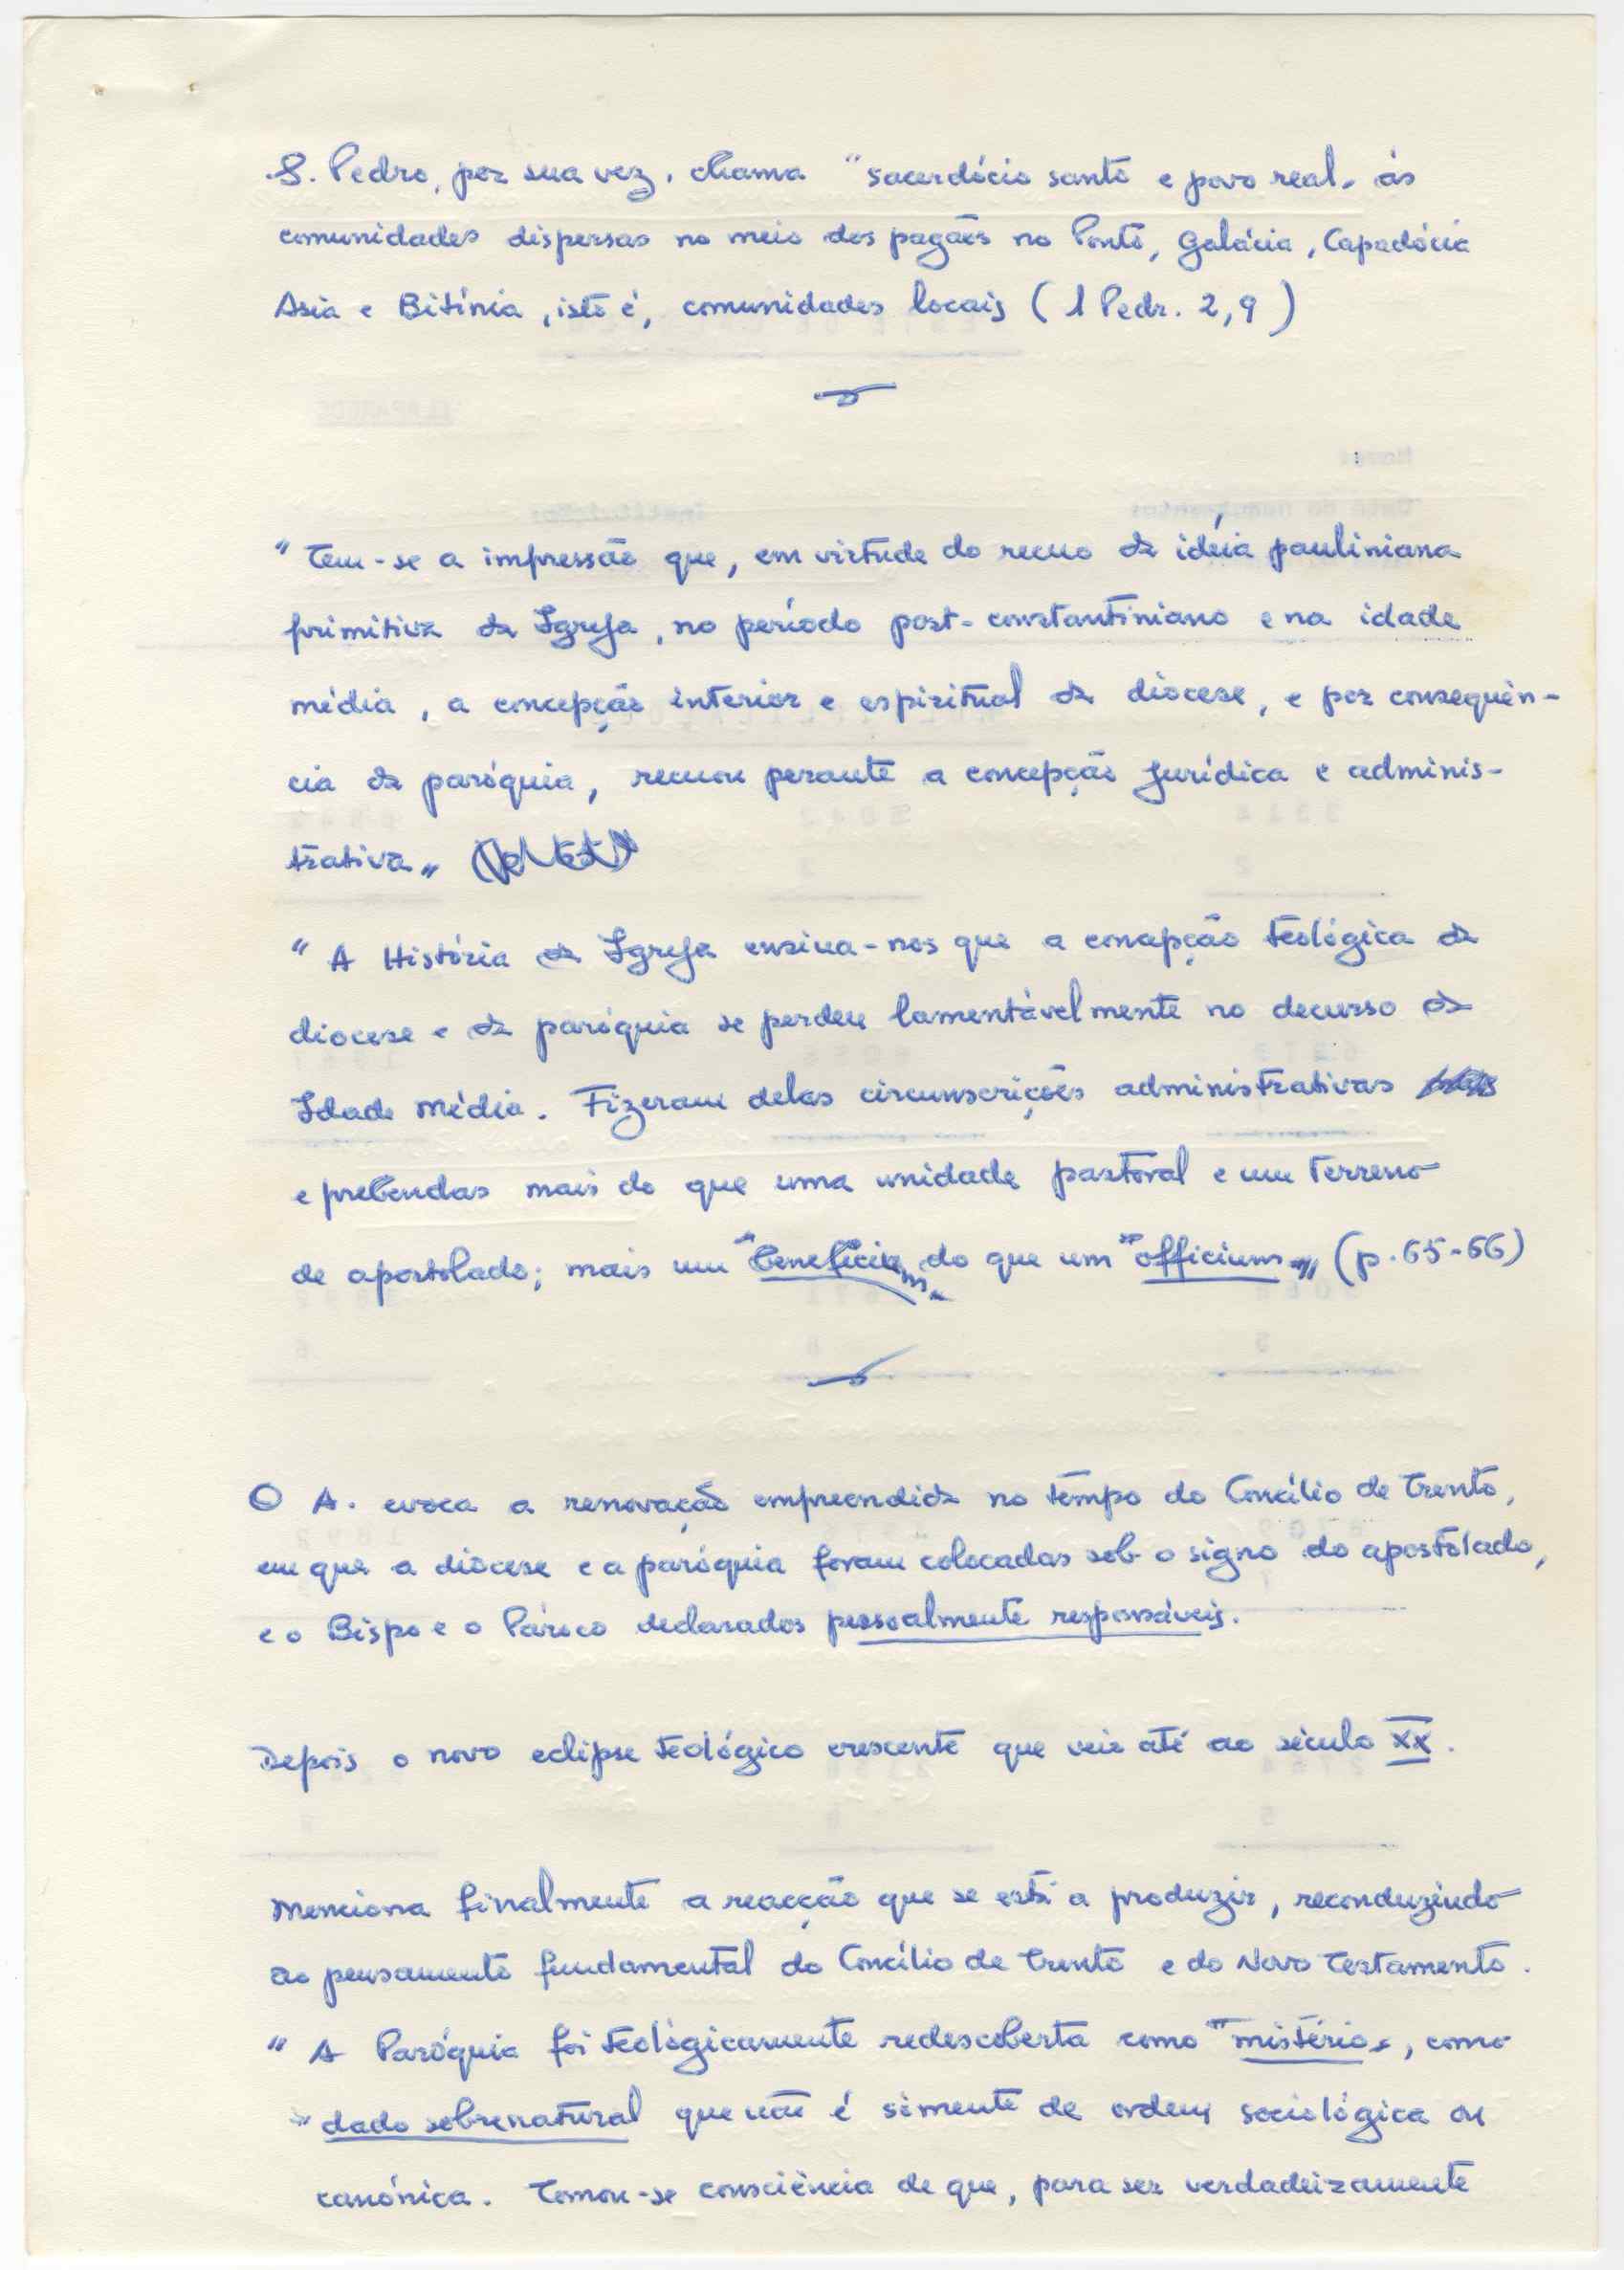 S. Pedro, por sua vez, chama "sacerdócio santo e povo real„ às
comunidades dispersas no meio dos pagãos no Ponto, Galácia, Capadócia
Asia e Bitínia, isto é, comunidades locais (1 Pedr. 2,9)
"Tem-se a impressão que, em virtude do recuo da idéia pauliniana
primitiva da Igreja, no período post-constantiniano e na idade
média, a concepção interior e espiritual da diocese, e por consequên-
cia da paróquia, recuou perante a concepção jurídica e adminis-
trativa„
"A História da Igreja ensina-nos que a concepção teológica da
diocese e da paróquia se perdeu lamentàvelmente no decurso da
Idade Média. Fizeram delas circunscrições administrativas
e prebendas mais do que uma unidade pastoral e um terreno
de apostolado; mais um "beneficium„ do que um "officium„„ (p. 65-66)
O A. evoca a renovação empreendida no tempo do Concílio de Trento,
em que a diocese e a paróquia foram colocadas sob o signo do apostolado,
e o Bispo e o Pároco declarados pessoalmente responsáveis.
Depois o novo eclipse teológico crescente que veio até ao século XX.
Menciona finalmente a reacção que se está a produzir, reconduzindo
ao pensamento fundamental do Concílio de Trento e do Novo Testamento.
"A Paróquia foi teològicamente redescoberta como "mistério„, como
"dado sobrenatural que não é sòmente de ordem sociológica ou
canónica. Tomou-se consciência de que, para ser verdadeiramente